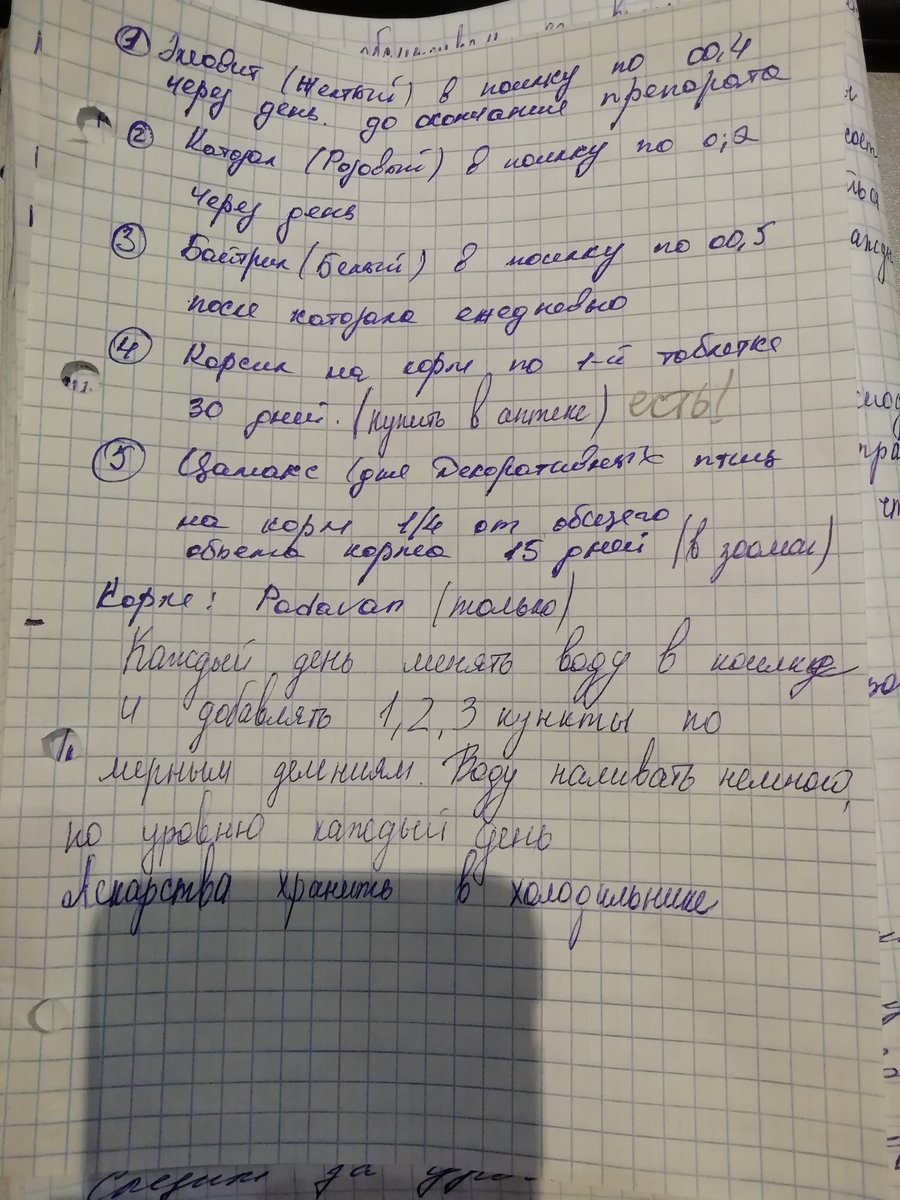 ① Элеовит (Желтый) в поилку по 00,4
через день. до окончания препарата
② Катозал (Розовый) в поилку по 0,2
через день
③ Байтрил (Белый) в поилку по 00,5
после катозала ежедневно
④ Карсил на корм по 1-й таблетке
30 дней. (купить в аптеке) есть!
⑤ Цамакс (для Декоративных птиц
на корм 1/4 от общего
объема корма 15 дней (в зоомаг)
Корм: Padovan (только)
Каждый день менять воду в поилке
и добавлять 1, 2, 3 пункты по
мерным делениям. Воду наливать немного,
по уровню каждый день
Лекарства хранить в холодильнике